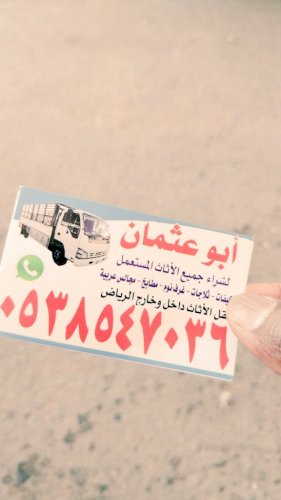 أبو عثمان
لشراء جميع الأثاث المستعمل
كيفات - ثلاجات - غرف نوم - مطابخ - مجالس عربية
نقل الأثاث داخل وخارج الرياض
٠٥٣٨٥٤٧٠٣٦